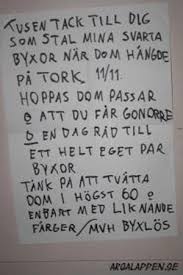 TUSEN TACK TILL DIG
SOM STAL MINA SVARTA
BYXOR NÄR DOM HÄNGDE
PÅ TORK 11/11.
HOPPAS DOM PASSAR
& ATT DU FÅR GONORRE
D EN DAG RÅD TILL
ETT HELT EGET PAR
BYXOR
TÄNK PÅ ATT TVÄTTA
DOM I HÖGST 60 &
ENBART MED LIKNANDE
FÄRGER/MVH BYXLÖS
ARGALAPPEN.SE